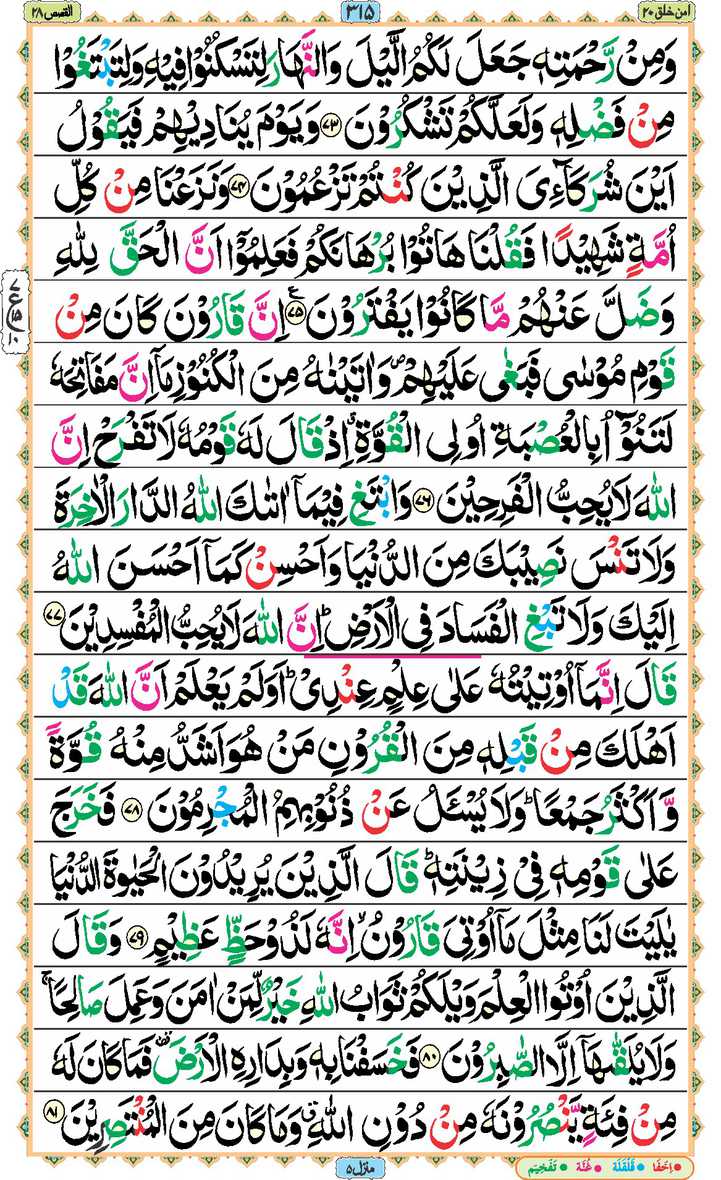 اَمَّنْ خَلَقَ ۲۰ ۳۱۵ الْقَصَص ۲۸
وَمِنْ رَّحْمَتِهٖ جَعَلَ لَكُمُ الَّيْلَ وَالنَّهَارَ لِتَسْكُنُوْا فِيْهِ وَلِتَبْتَغُوْا
مِنْ فَضْلِهٖ وَلَعَلَّكُمْ تَشْكُرُوْنَ ۝۷۳ وَيَوْمَ يُنَادِيْهِمْ فَيَقُوْلُ
اَيْنَ شُرَكَآءِىَ الَّذِيْنَ كُنْتُمْ تَزْعُمُوْنَ ۝۷۴ وَنَزَعْنَا مِنْ كُلِّ
اُمَّةٍ شَهِيْدًا فَقُلْنَا هَاتُوْا بُرْهَانَكُمْ فَعَلِمُوْٓا اَنَّ الْحَقَّ لِلّٰهِ
وَضَلَّ عَنْهُمْ مَّا كَانُوْا يَفْتَرُوْنَ ۝۷۵ اِنَّ قَارُوْنَ كَانَ مِنْ
قَوْمِ مُوْسٰى فَبَغٰى عَلَيْهِمْ ۪ وَاٰتَيْنٰهُ مِنَ الْكُنُوْزِ مَآ اِنَّ مَفَاتِحَهٗ
لَتَنُوْٓاُ بِالْعُصْبَةِ اُولِى الْقُوَّةِ ۗ اِذْ قَالَ لَهٗ قَوْمُهٗ لَا تَفْرَحْ اِنَّ
اللّٰهَ لَا يُحِبُّ الْفَرِحِيْنَ ۝۷۶ وَابْتَغِ فِيْمَآ اٰتٰىكَ اللّٰهُ الدَّارَ الْاٰخِرَةَ
وَلَا تَنْسَ نَصِيْبَكَ مِنَ الدُّنْيَا وَاَحْسِنْ كَمَآ اَحْسَنَ اللّٰهُ
اِلَيْكَ وَلَا تَبْغِ الْفَسَادَ فِى الْاَرْضِ ؕ اِنَّ اللّٰهَ لَا يُحِبُّ الْمُفْسِدِيْنَ ۝۷۷
قَالَ اِنَّمَآ اُوْتِيْتُهٗ عَلٰى عِلْمٍ عِنْدِىْ ؕ اَوَلَمْ يَعْلَمْ اَنَّ اللّٰهَ قَدْ
اَهْلَكَ مِنْ قَبْلِهٖ مِنَ الْقُرُوْنِ مَنْ هُوَ اَشَدُّ مِنْهُ قُوَّةً
وَّاَكْثَرُ جَمْعًا ؕ وَلَا يُسْئَلُ عَنْ ذُنُوْبِهِمُ الْمُجْرِمُوْنَ ۝۷۸ فَخَرَجَ
عَلٰى قَوْمِهٖ فِىْ زِيْنَتِهٖ ؕ قَالَ الَّذِيْنَ يُرِيْدُوْنَ الْحَيٰوةَ الدُّنْيَا
يٰلَيْتَ لَنَا مِثْلَ مَآ اُوْتِىَ قَارُوْنُ ۙ اِنَّهٗ لَذُوْ حَظٍّ عَظِيْمٍ ۝۷۹ وَقَالَ
الَّذِيْنَ اُوْتُوا الْعِلْمَ وَيْلَكُمْ ثَوَابُ اللّٰهِ خَيْرٌ لِّمَنْ اٰمَنَ وَعَمِلَ صَالِحًا ۚ
وَلَا يُلَقّٰىهَآ اِلَّا الصّٰبِرُوْنَ ۝۸۰ فَخَسَفْنَا بِهٖ وَبِدَارِهِ الْاَرْضَ ۫ فَمَا كَانَ لَهٗ
مِنْ فِئَةٍ يَّنْصُرُوْنَهٗ مِنْ دُوْنِ اللّٰهِ ۗ وَمَا كَانَ مِنَ الْمُنْتَصِرِيْنَ ۝۸۱
منزل ۵
اِخْفَا قَلْقَلَه غُنَّه تَفْخِيْم